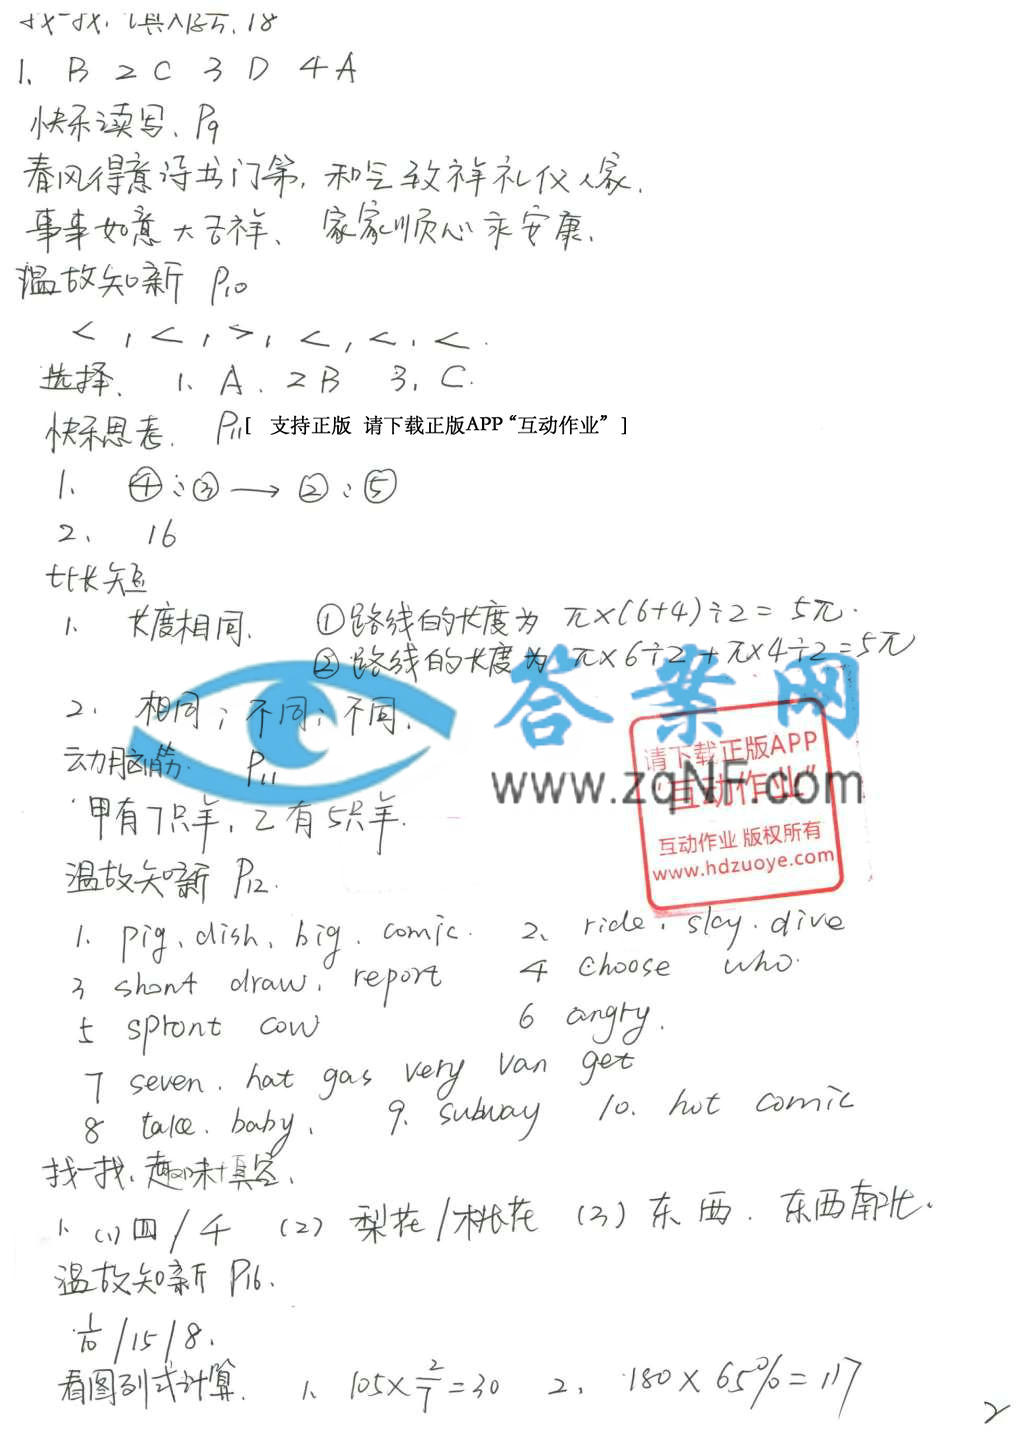 找一找,填入序号. P8
1、 B 2 C 3 D 4 A
快乐读写、P9
春风得意诗书门第,和气致祥礼仪人家.
事事如意大吉祥、 家家顺心永安康.
温故知新 P10
< , < , > , < , < , < .
选择、 1、A. 2 B 3、C.
快乐思考. P11
[ 支持正版 请下载正版APP“互动作业” ]
1、 ④:③ → ②:⑤
2、 16
比长短
1、 长度相同. ①路线的长度为 π×(6+4)÷2= 5π.
②路线的长度为 π×6÷2+π×4÷2=5π
2、 相同;不同;不同.
动脑筋. P11
甲有7只羊,乙有5只羊.
温故知新 P12.
1、pig、dish、big、comic. 2、ride、stay.dive
3 short draw、report 4 choose who.
5 spront cow 6 angry.
7 seven. hat gas very van get
8 take. baby. 9. subway 10. hot comic
找一找,趣味填空.
1、(1)四/千 (2)梨花/桃花 (3)东西. 东西南北.
温故知新 P16.
1/10 /15/8.
看图列式计算. 1、105×2/7=30 2、180×65%=117
2
答案网
www.zqNF.com
请下载正版APP
“互动作业”
互动作业 版权所有
www.hdzuoye.com